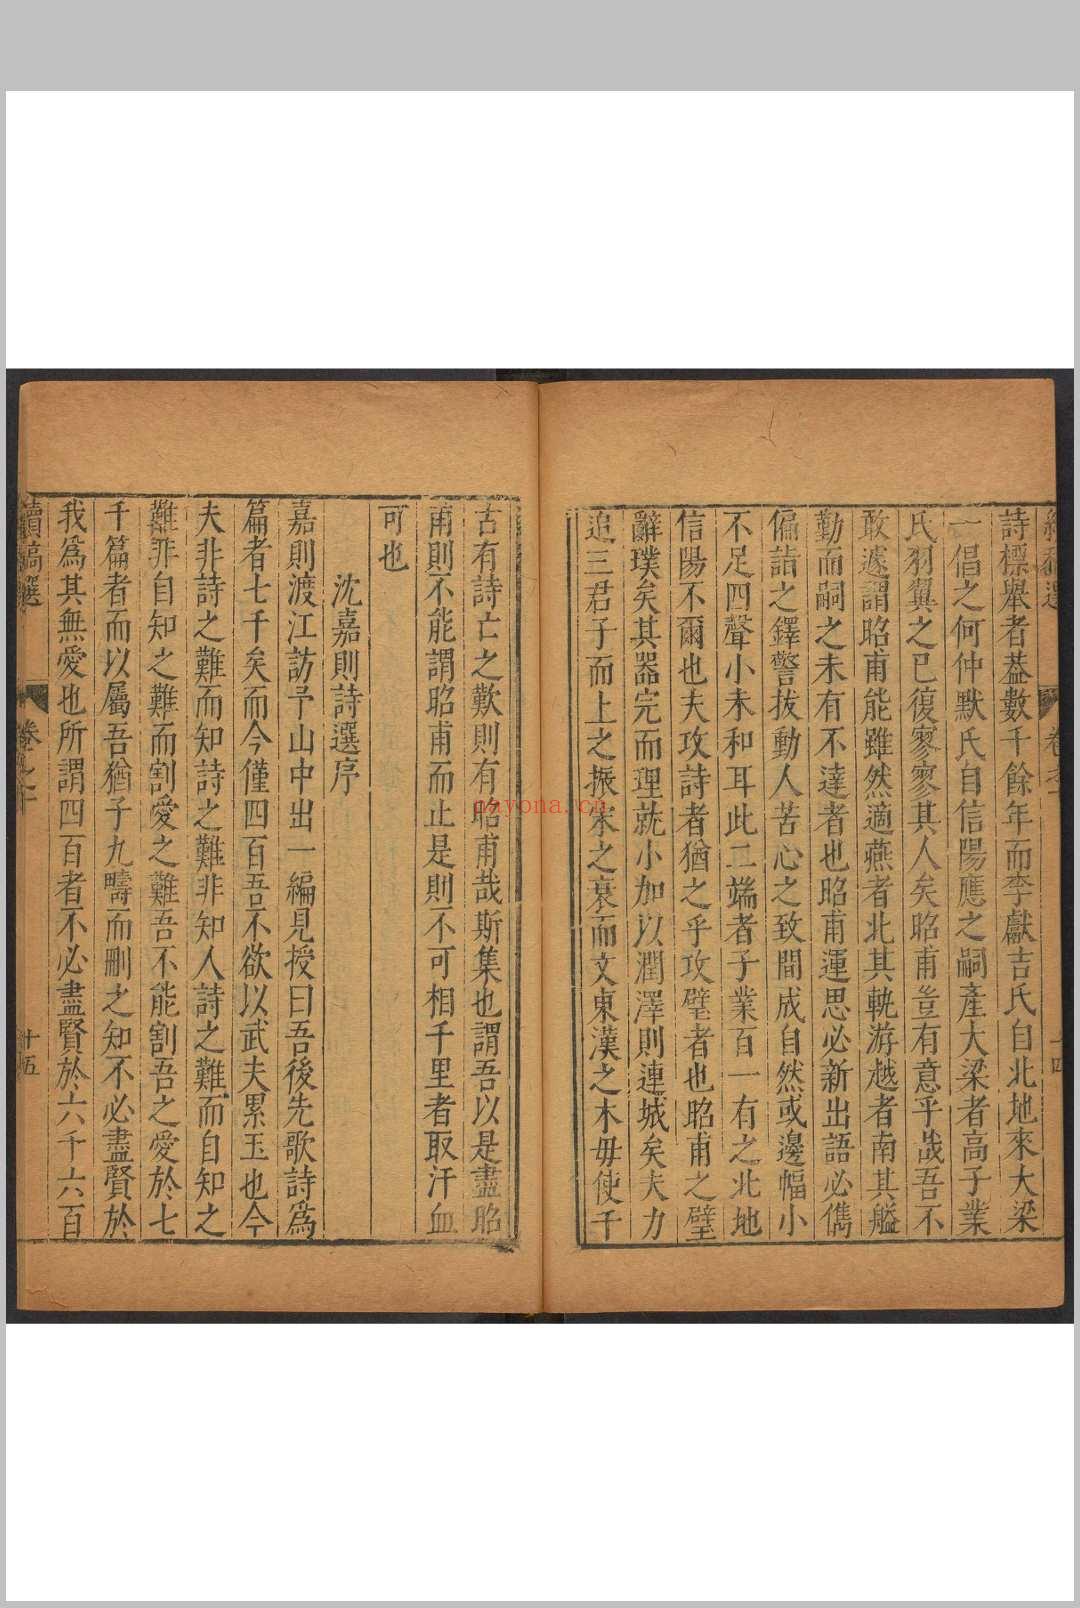 詩標舉者葢數千餘年而李獻吉氏自北地來大梁
一倡之何仲默氏自信陽應之嗣產大梁者高子業
氏羽翼之已復寥寥其人矣昭甫豈有意乎哉吾不
敢遽謂昭甫能雖然適燕者北其軌游越者南其艗
勤而嗣之未有不達者也昭甫運思必新出語必儁
偏詣之鐸警拔動人苦心之致間成自然或邊幅小
不足四聲小未和耳此二端者子業百一有之北地
信陽不爾也夫攻詩者猶之乎攻璧者也昭甫之璧
辭璞矣其器完而理就小加以潤澤則連城矣夫力
追三君子而上之振宋之衰而文東漢之木毋使千
古有詩亡之歎則有昭甫哉斯集也謂吾以是盡昭
甫則不能謂昭甫而止是則不可相千里者取汗血
可也
沈嘉則詩選序
嘉則渡江訪予山中出一編見授曰吾後先歌詩爲
篇者七千矣而今僅四百吾不欲以武夫累玉也今
夫非詩之難而知詩之難非知人詩之難而自知之
難非自知之難而割愛之難吾不能割吾之愛於七
千篇者而以屬吾猶子九疇而刪之知不必盡賢於
我爲其無愛也所謂四百者不必盡賢於六千六百
續稿選
卷之十
十五
cayona.cn